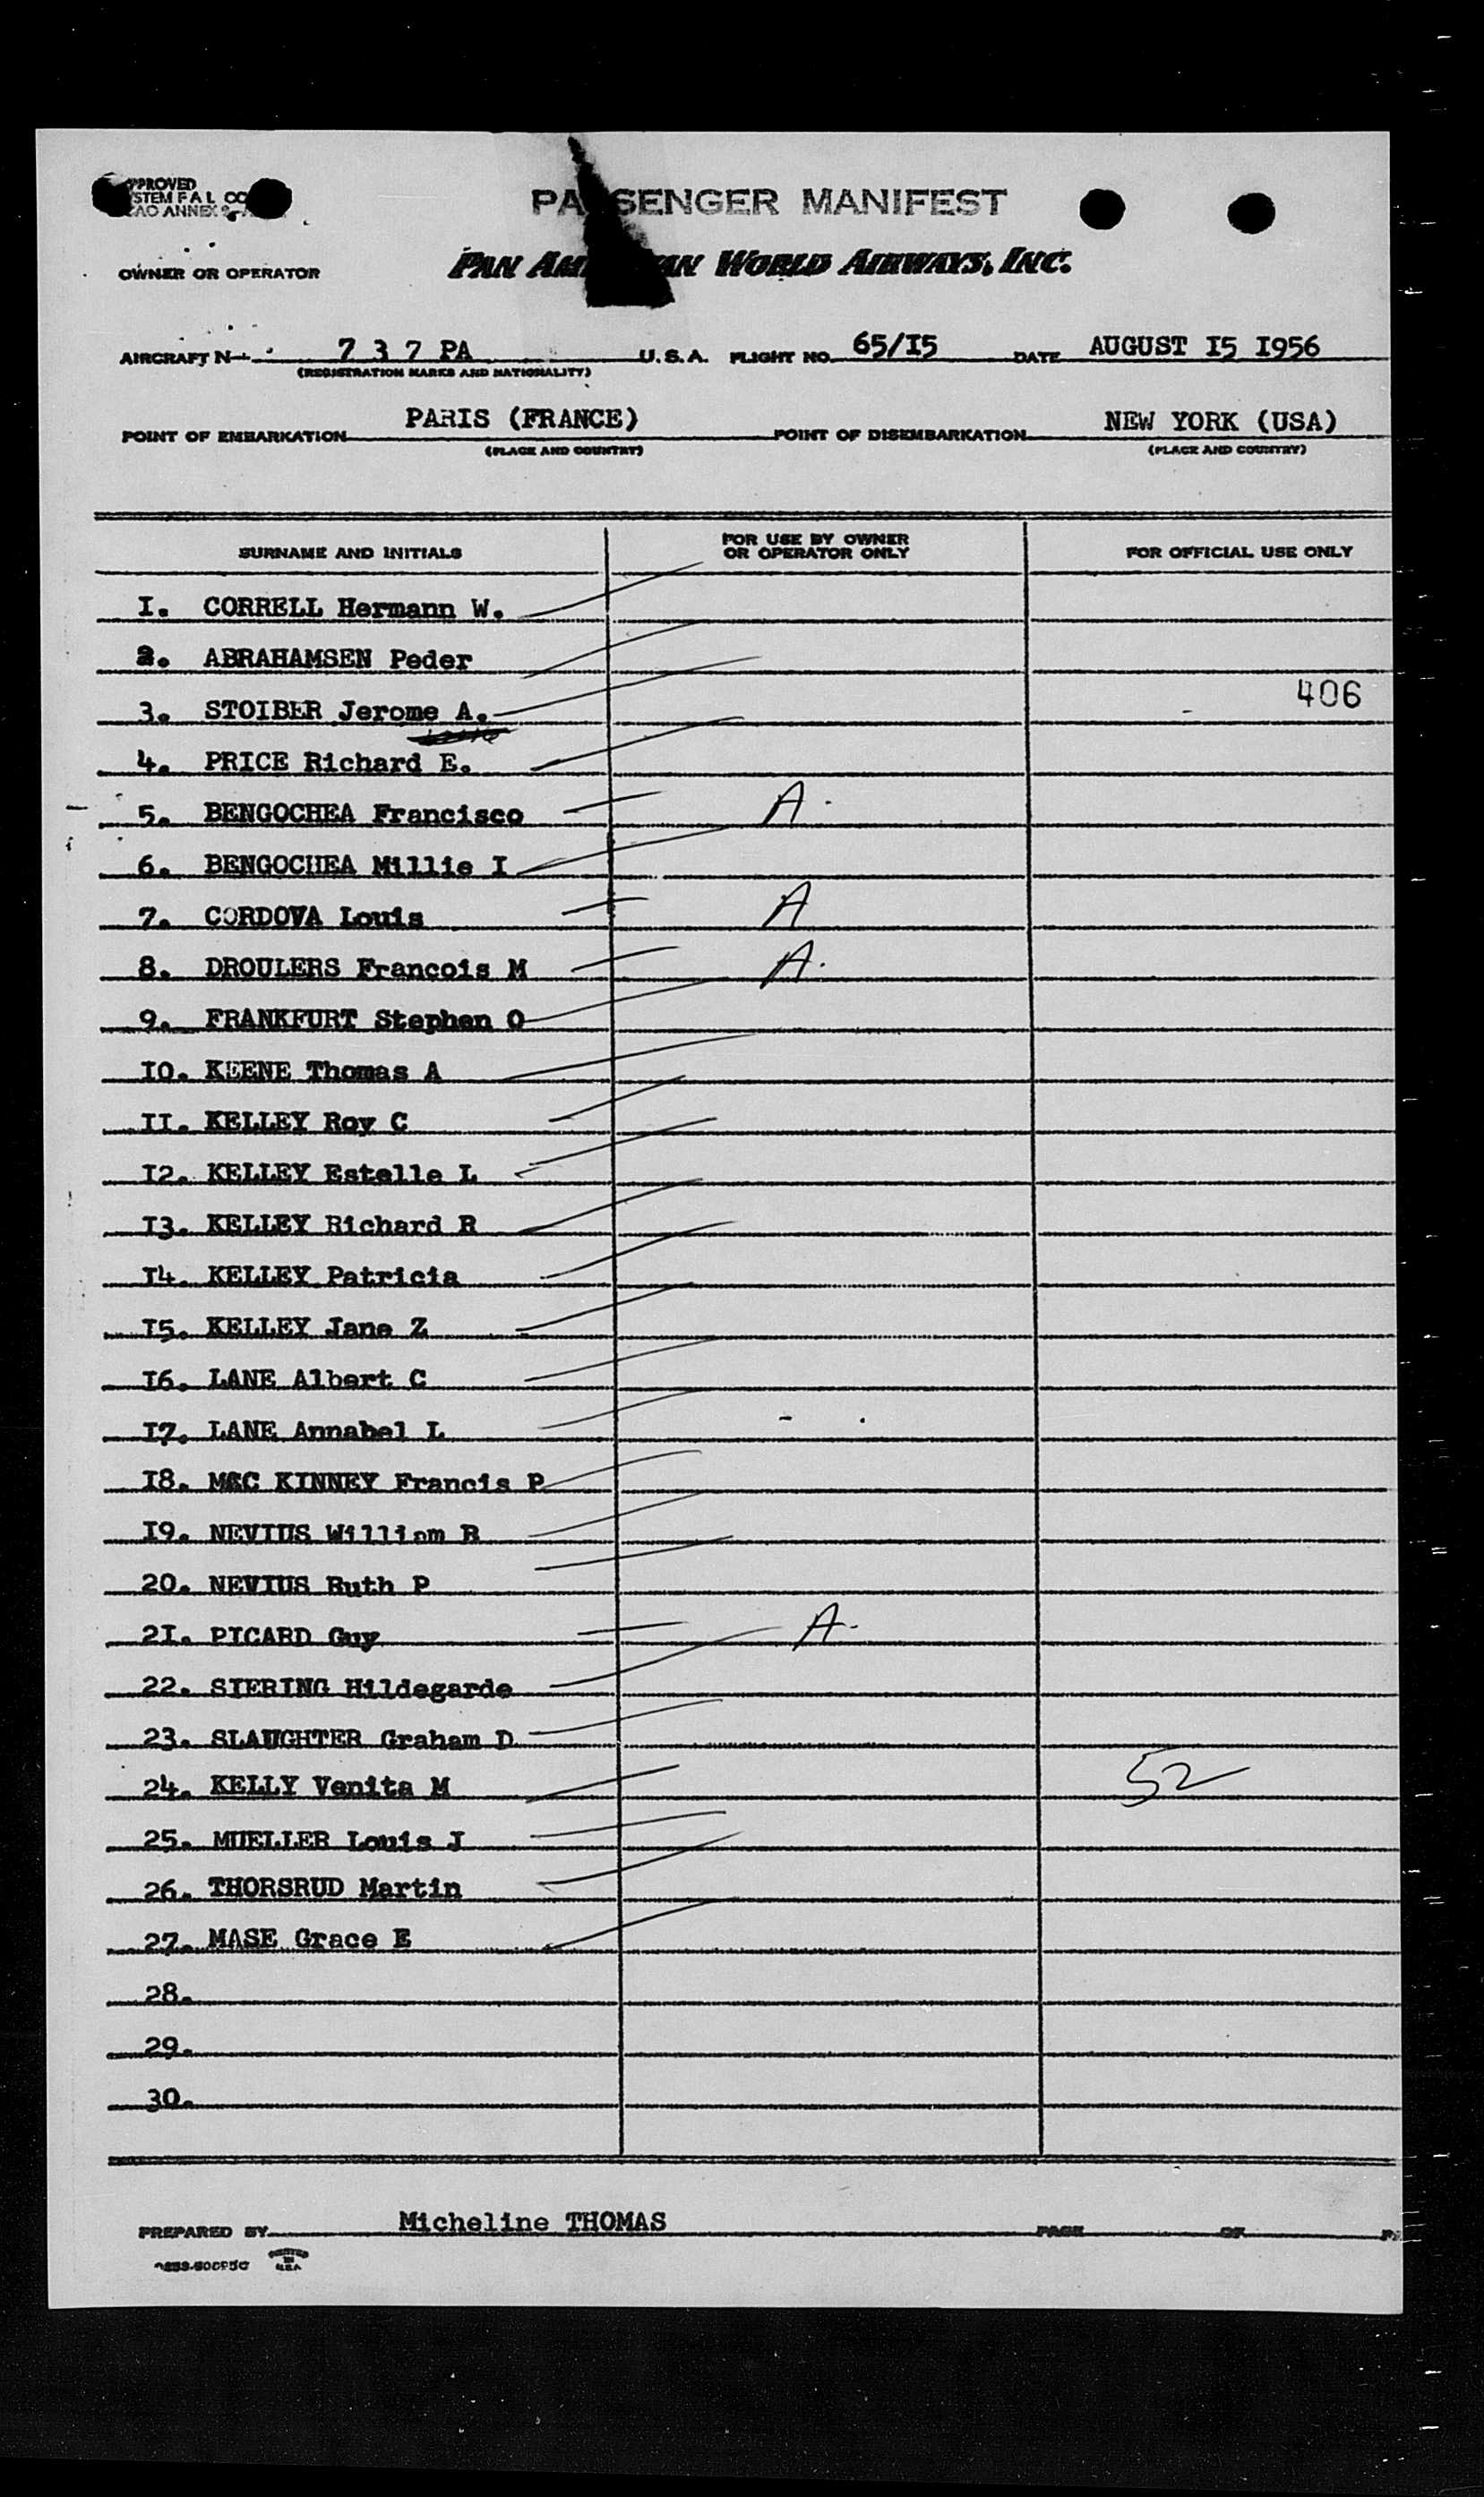 PASSENGER MANIFEST
OWNER OR OPERATOR PAN AMERICAN WORLD AIRWAYS, INC.
AIRCRAFT N 7 3 7 PA U. S. A. FLIGHT NO. 65/I5 DATE AUGUST I5 I956
(REGISTRATION MARKS AND NATIONALITY)
POINT OF EMBARKATION PARIS (FRANCE) POINT OF DISEMBARKATION NEW YORK (USA)
(PLACE AND COUNTRY) (PLACE AND COUNTRY)
SURNAME AND INITIALS FOR USE BY OWNER OR OPERATOR ONLY FOR OFFICIAL USE ONLY
I. CORRELL Hermann W.
2. ABRAHAMSEN Peder
3. STOIBER Jerome A. 406
4. PRICE Richard E.
5. BENGOCHEA Francisco A.
6. BENGOCHEA Millie I
7. CORDOVA Louis A
8. DROULERS Francois M A.
9. FRANKFURT Stephen O
I0. KEENE Thomas A
II. KELLEY Roy C
I2. KELLEY Estelle L
I3. KELLEY Richard R
I4. KELLEY Patricia
I5. KELLEY Jane Z
I6. LANE Albert C
I7. LANE Annabel L
I8. MAC KINNEY Francis P
I9. NEVIUS William B
20. NEVIUS Ruth P
2I. PICARD Guy A.
22. SIERING Hildegarde
23. SLAUGHTER Graham D
24. KELLY Venita M 52
25. MUELLER Louis J
26. THORSRUD Martin
27. MASE Grace E
28.
29.
30.
PREPARED BY Micheline THOMAS PAGE OF